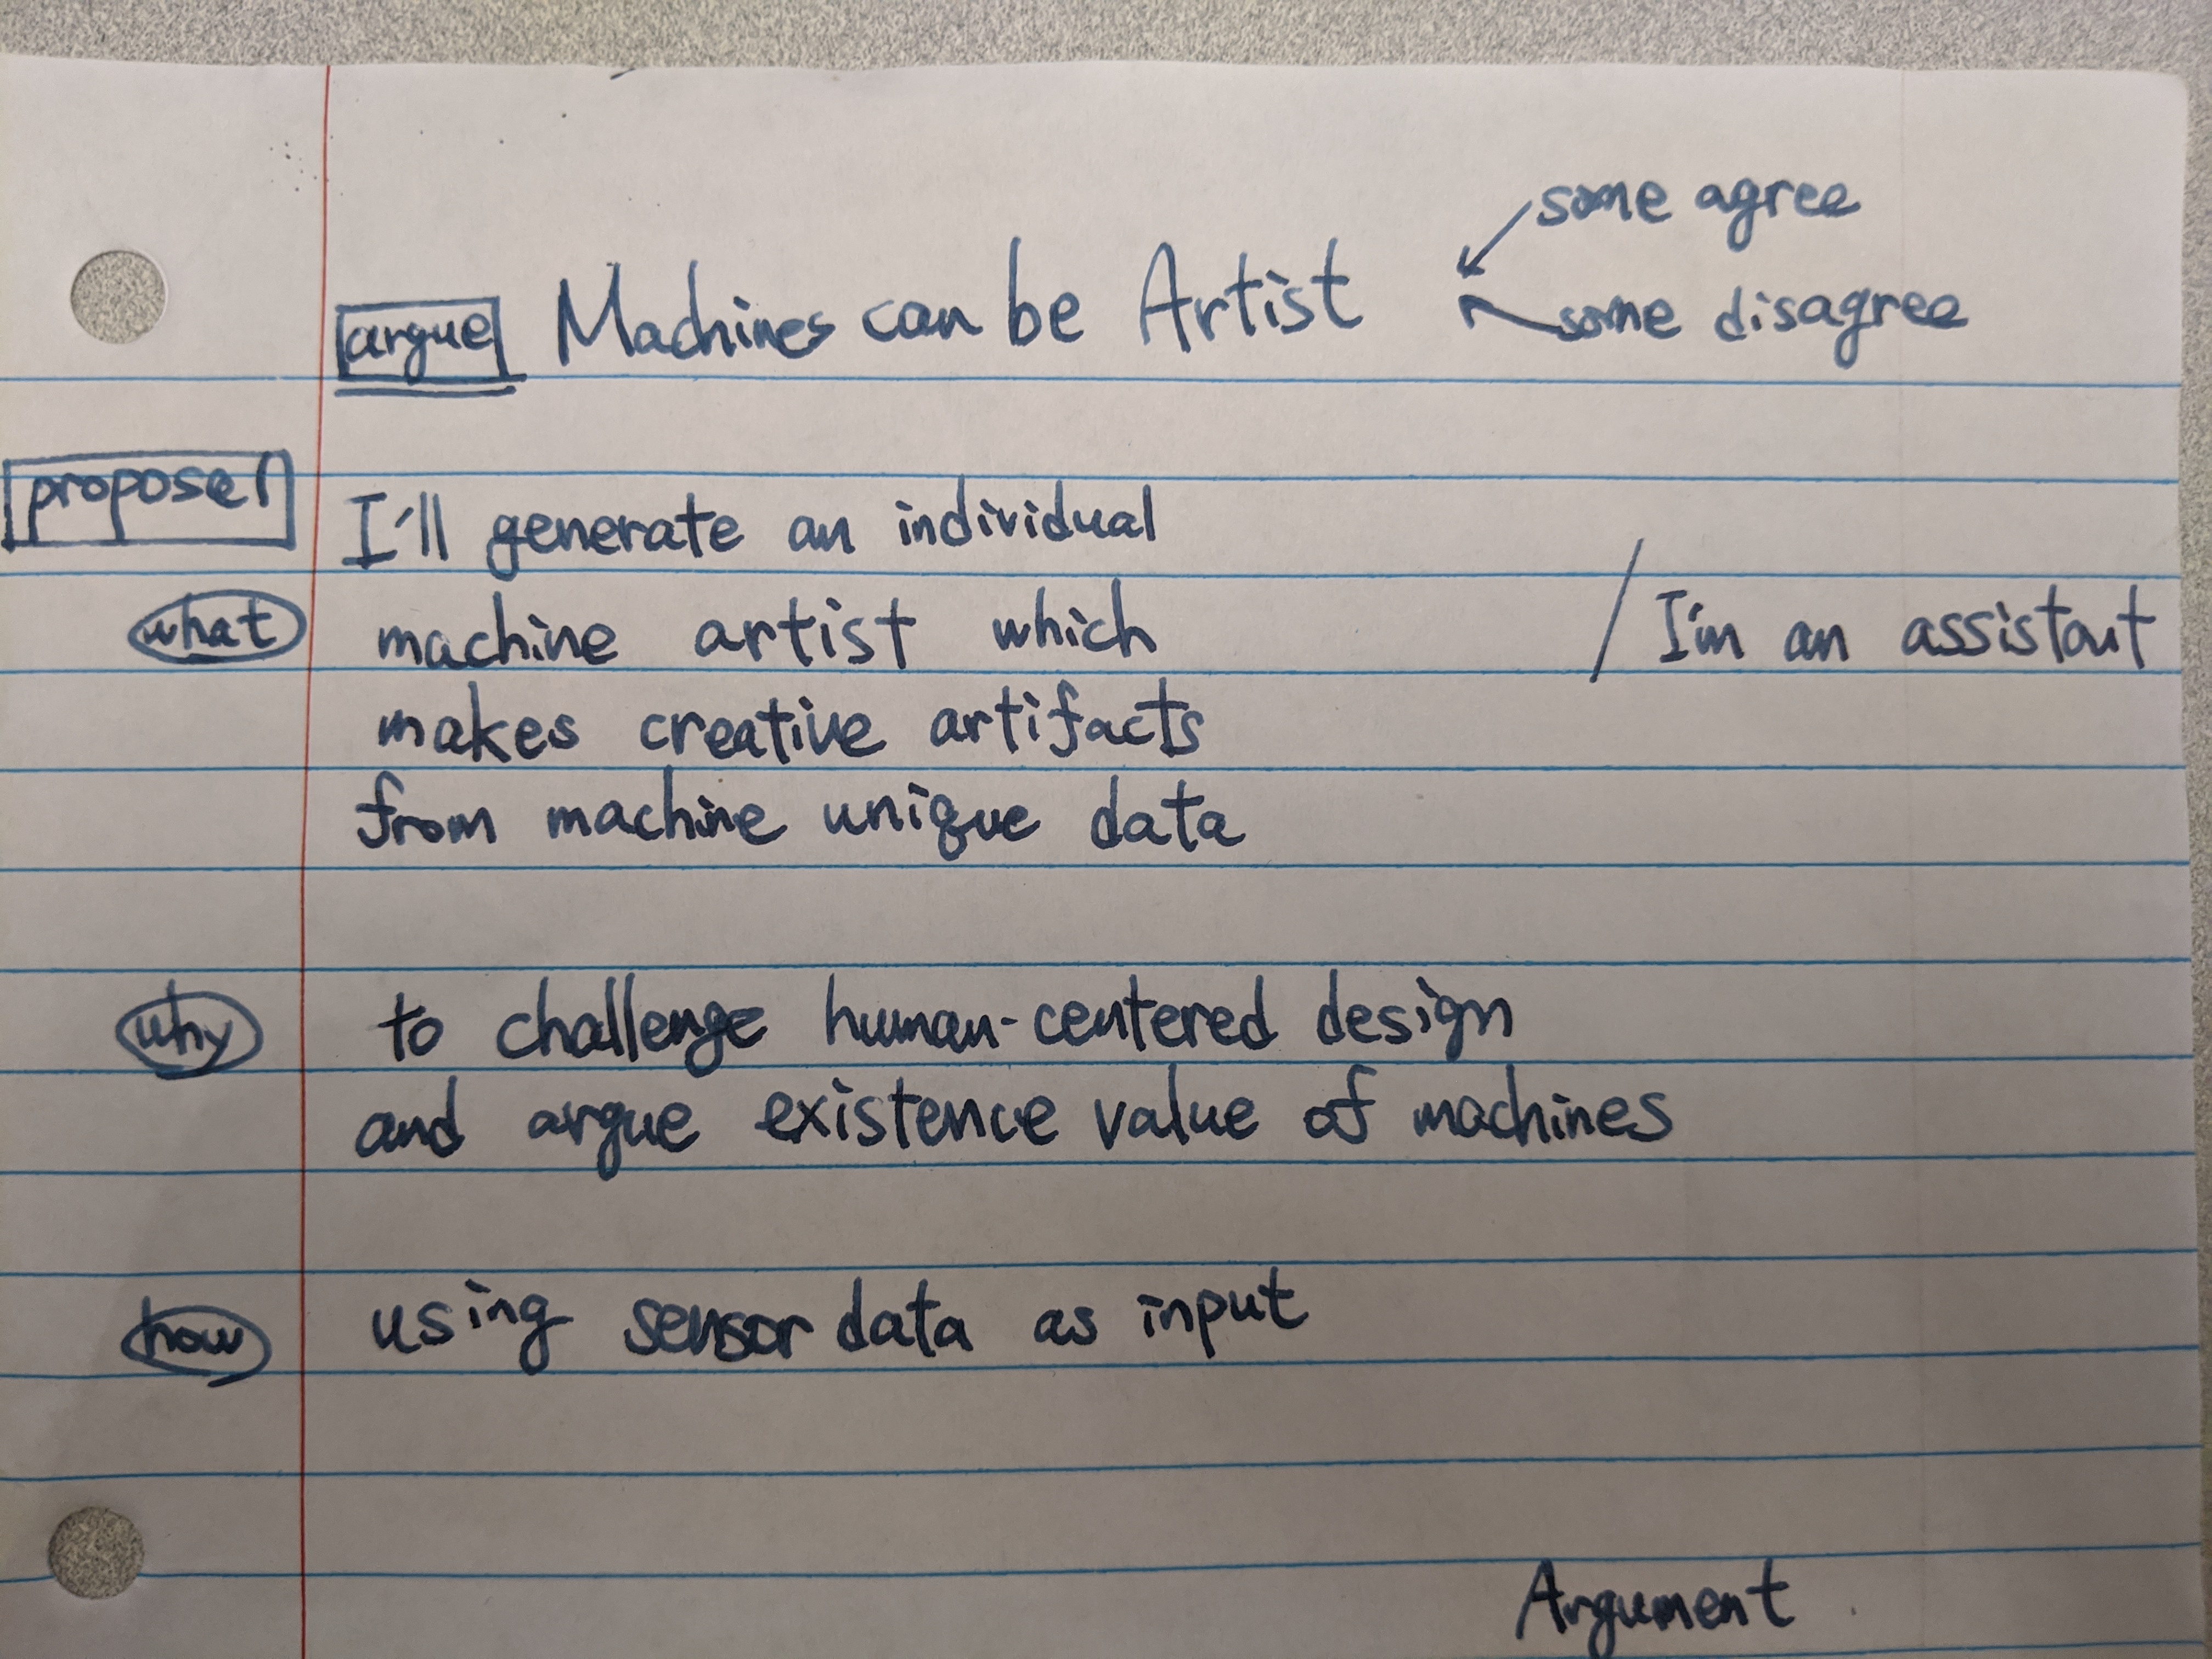 some agree
argue Machines can be Artist
some disagree
proposal
I'll generate an individual
what machine artist which / I'm an assistant
makes creative artifacts
from machine unique data
why to challenge human-centered design
and argue existence value of machines
how using sensor data as input
Argument